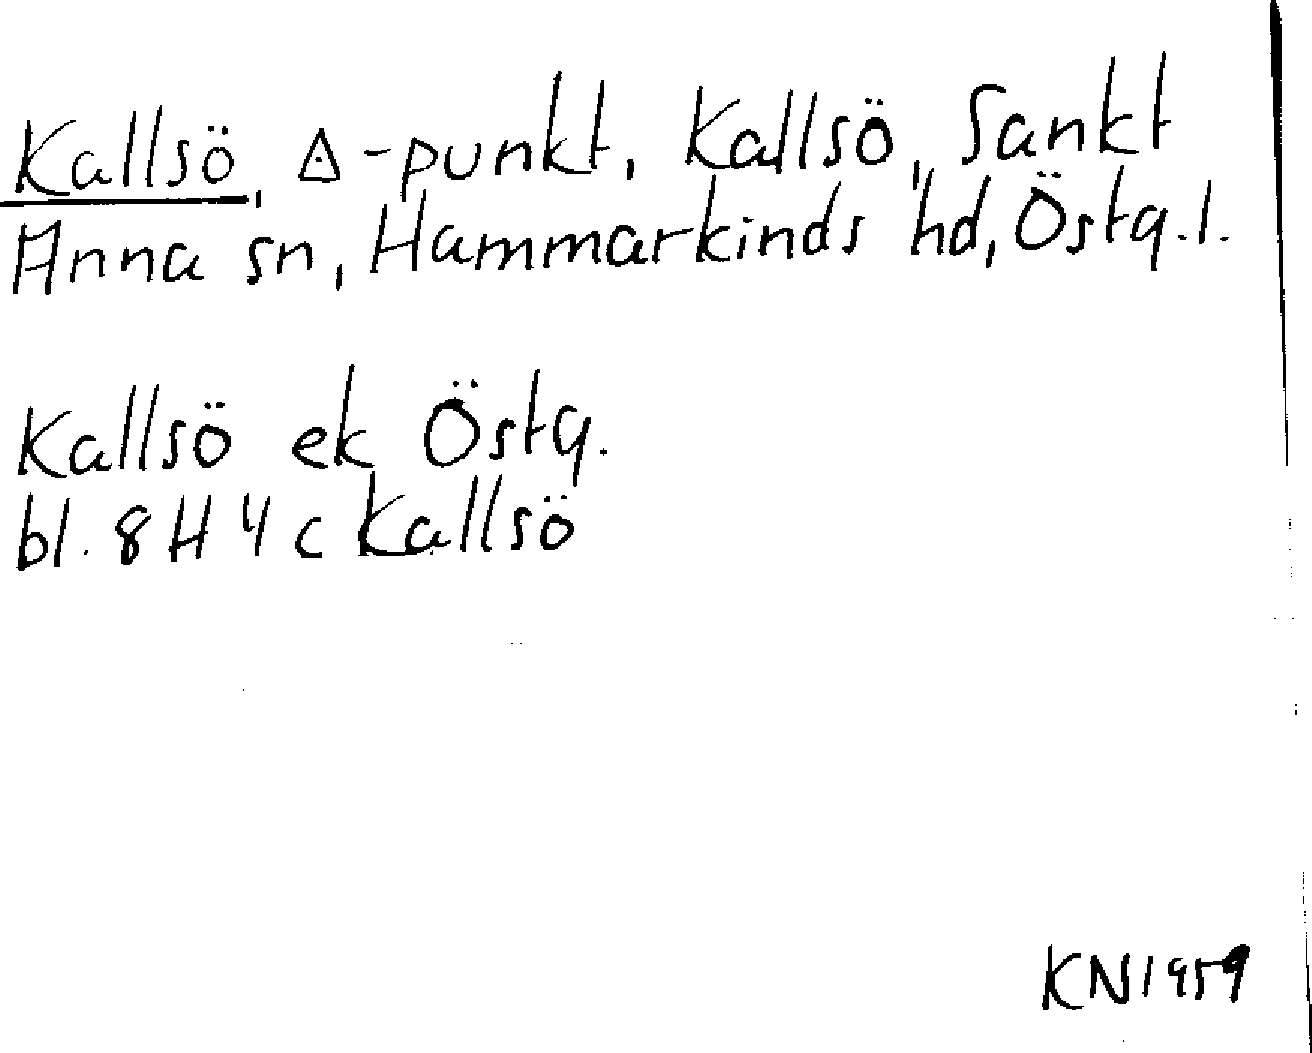 Kallsö, △-punkt, Kallsö, Sankt
Anna sn, Hammarkinds hd, Östg.l.
Kallsö ek Östg.
bl. 8H 4c Kallsö
KN1959